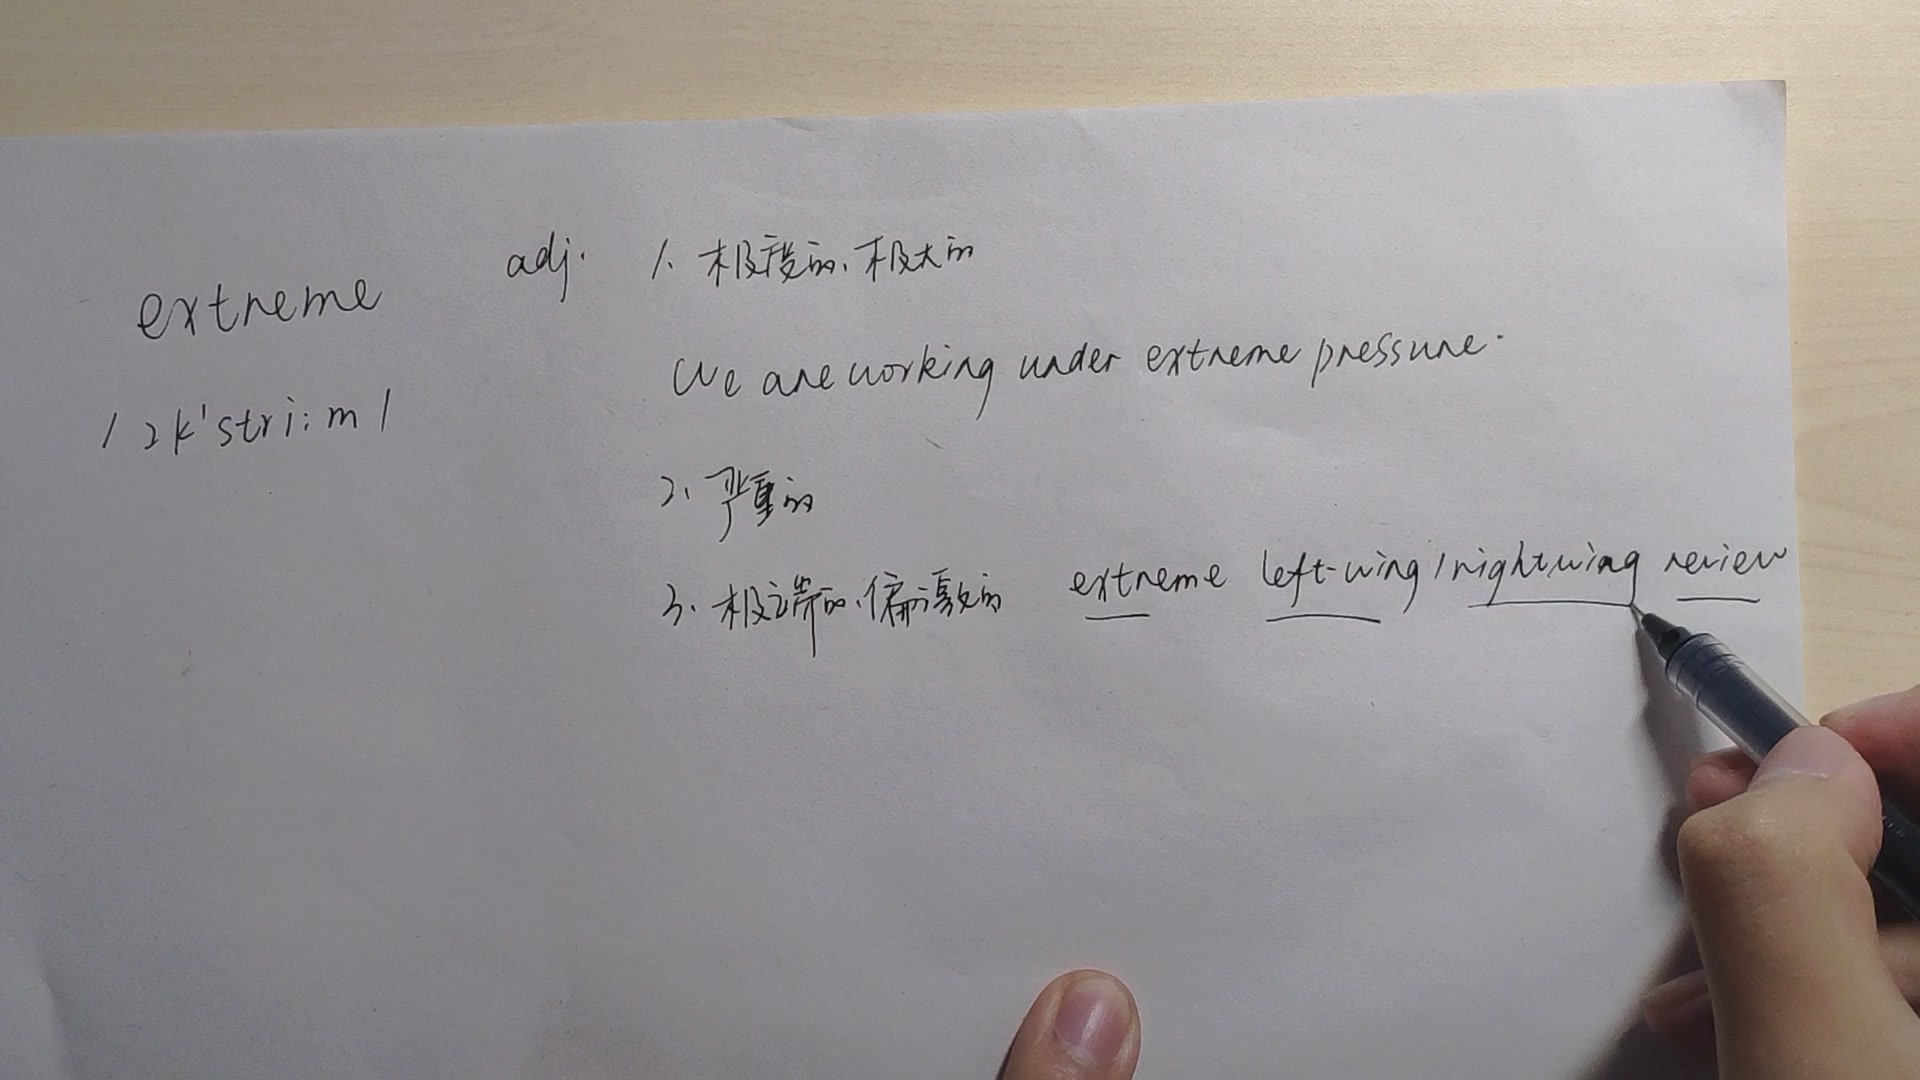 extreme
/ɪk'stri:m/
adj. 1、极度的、极大的
We are working under extreme pressure.
2、严重的
3、极端的、偏激的 extreme left-wing/rightwing review